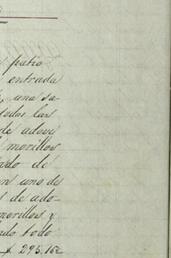 patio
entrada
una sa-
todas las
de adove
morillos
ado de
en uno de
s de ado-
morillos y
ado todo
$ 295.16c